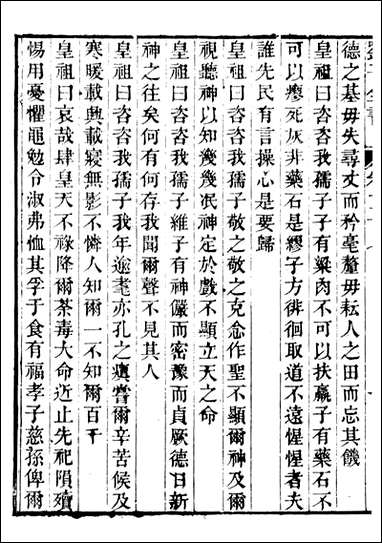 德之基毋失尋丈而矜毫釐毋耘人之田而忘其饑
皇祖曰咨咨我孺子子有粱肉不可以扶羸子有藥石不
可以瘳死灰非藥石是繆子方徘徊取道不遠惺惺者夫
誰先民有言操心是要歸
皇祖曰咨咨我孺子敬之敬之克念作聖不顯爾神及爾
視聽神以知幾幾㞧神定於戲不顯立天之命
皇祖曰咨咨我孺子維子有神儼而密豫而貞厥德日新
神之往矣何有何存我聞爾聲不見其人
皇祖曰咨咨我孺子我年逾耄亦孔之邅嘗爾辛苦候及
寒暖載興載寢無影不憐人知爾一不知爾百千
皇祖曰哀哉肆皇天不祿降爾荼毒大命近止先祀隕殰
惕用憂懼黽勉令淑弗恤其孚于食有福孝子慈孫俾爾